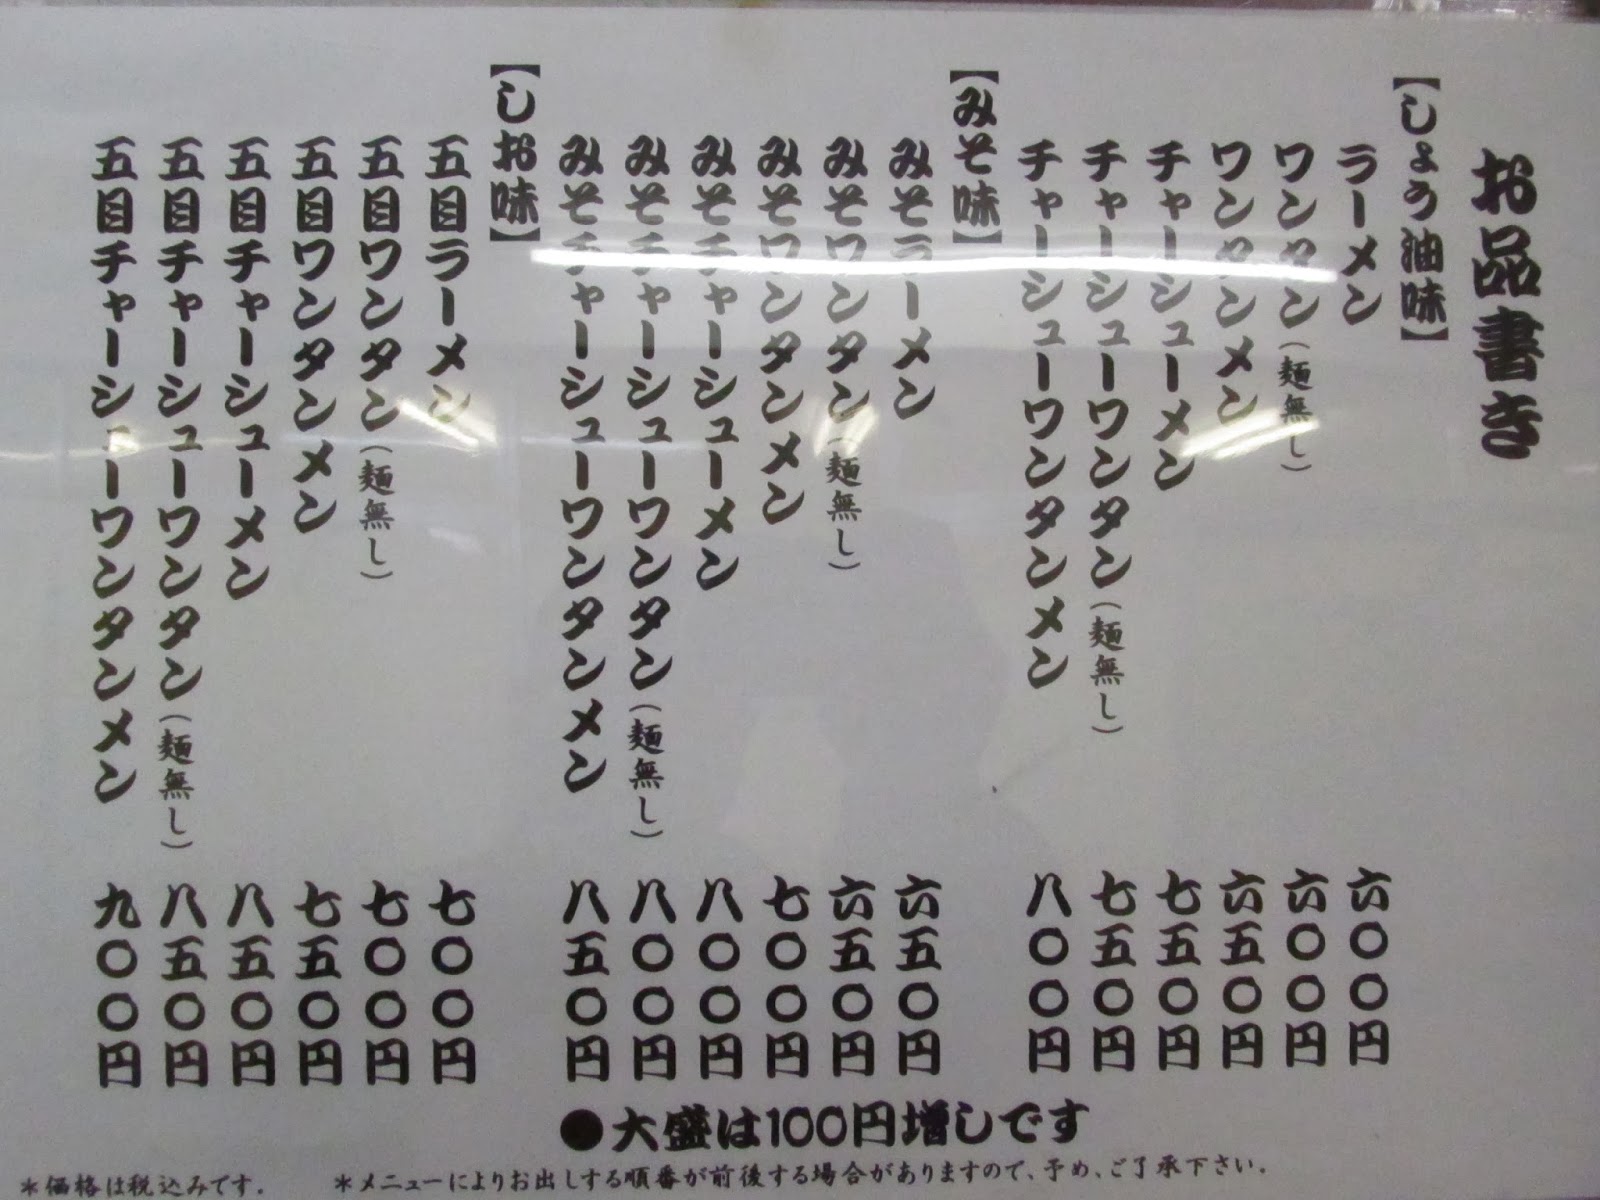 お品書き
【しょう油味】
ラーメン 六〇〇円
ワンタン(麺無し) 六〇〇円
ワンタンメン 六五〇円
チャーシューメン 七五〇円
チャーシューワンタン(麺無し) 七五〇円
チャーシューワンタンメン 八〇〇円
【みそ味】
みそラーメン 六五〇円
みそワンタン(麺無し) 六五〇円
みそワンタンメン 七〇〇円
みそチャーシューメン 八〇〇円
みそチャーシューワンタン(麺無し) 八〇〇円
みそチャーシューワンタンメン 八五〇円
【しお味】
五目ラーメン 七〇〇円
五目ワンタン(麺無し) 七〇〇円
五目ワンタンメン 七五〇円
五目チャーシューメン 八五〇円
五目チャーシューワンタン(麺無し) 八五〇円
五目チャーシューワンタンメン 九〇〇円
●大盛は100円増しです
*価格は税込みです. *メニューによりお出しする順番が前後する場合がありますので、予め、ご了承下さい.